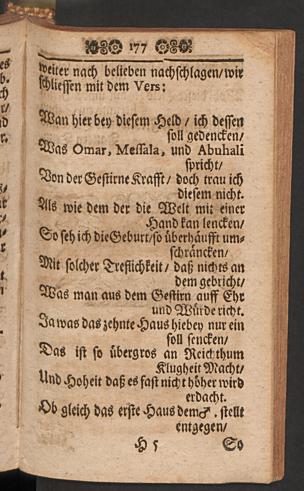 177
weiter nach belieben nachschlagen/ wir
schliessen mit dem Vers:
Wan hier bey diesem Held / ich dessen
soll gedencken/
Was Omar, Messala, und Abuhali
spricht/
Von der Gestirne Krafft / doch trau ich
diesem nicht.
Als wie dem der die Welt mit einer
Hand kan lencken/
So seh ich die Geburt/ so überhäufft um-
schräncken/
Mit solcher Treflichkeit / daß nichts an
dem gebricht/
Was man aus dem Gestirn auff Ehr
und Würde richt.
Ja was das zehnte Haus hiebey nur ein
soll sencken/
Das ist so übergros an Reichthum
Klugheit Macht/
Und Hoheit daß es fast nicht höher wird
erdacht.
Ob gleich das erste Haus dem ♂. stellt
entgegen/
H 5 So